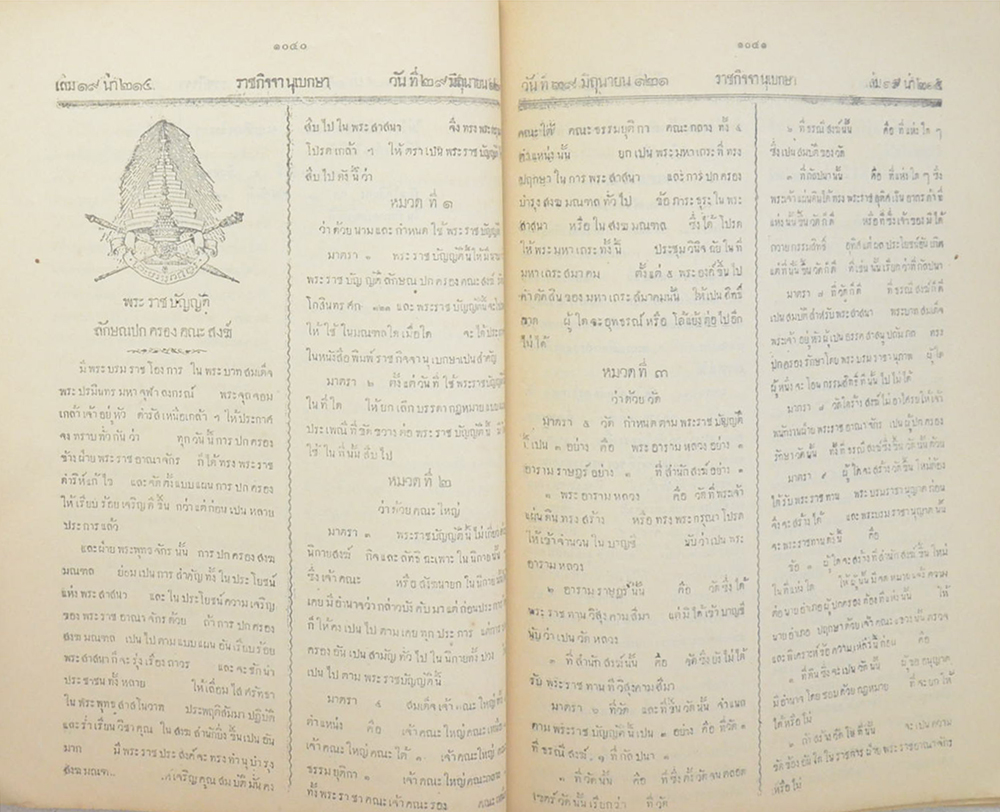 ๑๐๔๐
เล่ม ๑๙ น่า ๒๑๔
ราชกิจจานุเบกษา
วันที่ ๒๙ มิถุนายน ๑๒
พระราชบัญญัติ
ลักษณปกครองคณะสงฆ์
มีพระบรมราชโองการ ในพระบาทสมเด็จ
พระปรมินทรมหาจุฬาลงกรณ์ พระจุลจอม
เกล้าเจ้าอยู่หัว ดำรัสเหนือเกล้า ฯ ให้ประกาศ
จงทราบทั่วกันว่า ทุกวันนี้การปกครอง
ข้างฝ่ายพระราชอาณาจักร ก็ได้ทรงพระราช
ดำริห์แก้ไข และจัดตั้งแบบแผนการปกครอง
ให้เรียบร้อยเจริญดีขึ้น กว่าแต่ก่อนเปนหลาย
ประการแล้ว
และฝ่ายพระพุทธจักรนั้น การปกครองสงฆ
มณฑล ย่อมเปนการสำคัญทั้งในประโยชน์
แห่งพระสาสนา และในประโยชน์ความเจริญ
ของพระราชอาณาจักรด้วย ถ้าการปกครอง
สงฆมณฑล เปนไปตามแบบแผนอันเรียบร้อย
พระสาสนาก็จะรุ่งเรืองถาวร และจะชักนำ
ประชาชนทั้งหลาย ให้เลื่อมใสศรัทธา
ในพระพุทธสาสโนวาท ประพฤติสัมมาปฏิบัติ
และร่ำเรียนวิชาคุณ ในสงฆสำนักยิ่งขึ้นเปนอัน
มาก มีพระราชประสงค์จะทรงทำนุบำรุง
สงฆมณฑล เจริญคุณสมบัติมั่นคง
สืบไปในพระสาสนา จึงทรงพระกรุณา
โปรดเกล้า ฯ ให้ตราเปนพระราชบัญญัติ
สืบไปดังนี้ว่า
หมวดที่ ๑
ว่าด้วยนามและกำหนดใช้พระราชบัญญัติ
มาตรา ๑ พระราชบัญญัตินี้ให้มีนาม
พระราชบัญญัติลักษณปกครองคณะสงฆ์ รัต
โกสินทรศก ๑๒๑ และพระราชบัญญัตินี้จะโปร
ให้ใช้ในมณฑลใดเมื่อใด จะได้ประกาศ
ในหนังสือพิมพ์ราชกิจจานุเบกษาเปนสำคัญ
มาตรา ๒ ตั้งแต่วันที่ใช้พระราชบัญญัติ
ในที่ใด ให้ยกเลิกบรรดากฎหมายแบบแผน
ประเพณีที่ขัดขวางต่อพระราชบัญญัตินี้ มิให้
ใช้ในที่นั้นสืบไป
หมวดที่ ๒
ว่าด้วยคณะใหญ่
มาตรา ๓ พระราชบัญญัตินี้ไม่เกี่ยวด้วย
นิกายสงฆ์ กิจและลัทธิฉะเพาะในนิกายนั้น
ซึ่งเจ้าคณะ หรือสังฆนายกในนิกายนั้น
เคยมีอำนาจว่ากล่าวบังคับมาแต่ก่อนประการใด
ก็ให้คงเปนไปตามเคยทุกประการ แต่การปก
ครองอันเปนสามัญทั่วไปในนิกายทั้งปวง
เปนไปตามพระราชบัญญัตินี้
มาตรา ๔ สมเด็จเจ้าคณะใหญ่ทั้ง
ตำแหน่ง คือ เจ้าคณะใหญ่คณะเหนือ
เจ้าคณะใหญ่คณะใต้ ๑ เจ้าคณะใหญ่
ธรรมยุติกา ๑ เจ้าคณะใหญ่คณะกลาง
ทั้งพระราชาคณะเจ้าคณะรอง คณะเหนือ
๑๐๔๑
วันที่ ๒๙ มิถุนายน ๑๒๑
ราชกิจจานุเบกษา
เล่ม ๑๙ น่า ๒๑๕
คณะใต้ คณะธรรมยุติกา คณะกลาง ทั้ง ๔
ตำแหน่งนั้น ยกเปนพระมหาเถระที่ทรง
ปฤกษาในการพระสาสนา และการปกครอง
บำรุงสงฆมณฑลทั่วไป ข้อภาระธุระในพระ
สาสนา หรือในสงฆมณฑล ซึ่งได้โปรด
ให้พระมหาเถระทั้งนี้ ประชุมวินิจฉัยในที่
มหาเถรสมาคม ตั้งแต่ ๕ พระองค์ขึ้นไป
คำตัดสินของมหาเถรสมาคมนั้น ให้เปนสิทธิ์
ขาด ผู้ใดจะอุทธรณ์หรือโต้แย้งต่อไปอีก
ไม่ได้
หมวดที่ ๓
ว่าด้วยวัด
มาตรา ๕ วัดกำหนดตามพระราชบัญญัติ
นี้เปน ๓ อย่าง คือ พระอารามหลวงอย่าง ๑
อารามราษฎร์อย่าง ๑ ที่สำนักสงฆ์อย่าง ๑
๑ พระอารามหลวง คือ วัดที่พระเจ้า
แผ่นดินทรงสร้าง หรือทรงพระกรุณาโปรด
ให้เข้าจำนวนในบาญชี นับว่าเปนพระ
อารามหลวง
๒ อารามราษฎร์นั้น คือ วัดซึ่งได้
พระราชทานวิสุงคามสีมา แต่มิได้เข้าบาญชี
นับว่าเปนวัดหลวง
๓ ที่สำนักสงฆ์นั้น คือ วัดซึ่งยังไม่ได้
รับพระราชทานที่วิสุงคามสีมา
มาตรา ๖ ที่วัด และที่ขึ้นวัดนั้น จำแนก
ตามพระราชบัญญัตินี้เปน ๓ อย่าง คือ ที่วัด ๑
ที่ธรณีสงฆ์ ๑ ที่กัลปนา ๑
๑ ที่วัดนั้น คือ ที่ซึ่งตั้งวัดจนตลอด
เขตร์วัดนั้นเรียกว่า ที่วัด
๒ ที่ธรณีสงฆ์นั้น คือ ที่แห่งใด ๆ
ซึ่งเปนสมบัติของวัด
๓ ที่กัลปนานั้น คือ ที่แห่งใด ๆ ซึ่ง
พระเจ้าแผ่นดินได้ทรงพระราชอุทิศเงินอากรค่าที่
แห่งนั้นขึ้นวัดก็ดี หรือที่ซึ่งเจ้าของมิได้
ถวายกรรมสิทธิ์ อุทิศแต่ผลประโยชน์อันเกิด
แต่ที่นั้นขึ้นวัดก็ดี ที่เช่นนั้นเรียกว่าที่กัลปนา
มาตรา ๗ ที่วัดก็ดี ที่ธรณีสงฆ์ก็ดี
เปนสมบัติสำหรับพระสาสนา พระบาทสมเด็จ
พระเจ้าอยู่หัวผู้เปนอรรคสาสนูปถัมภก ทรง
ปกครองรักษาโดยพระบรมราชานุภาพ ผู้ใด
ผู้หนึ่งจะโอนกรรมสิทธิ์ที่นั้นไปไม่ได้
มาตรา ๘ วัดใดร้างสงฆ์ไม่อาไศรยให้เจ้า
พนักงานฝ่ายพระราชอาณาจักร เปนผู้ปกครอง
รักษาวัดนั้น ทั้งที่ธรณีสงฆ์ซึ่งขึ้นวัดนั้นด้วย
มาตรา ๙ ผู้ใดจะสร้างวัดขึ้นใหม่ต้อง
ได้รับพระราชทาน พระบรมราชานุญาตก่อน
จึงจะสร้างได้ และพระบรมราชานุญาตนั้น
จะพระราชทานดังนี้ คือ
ข้อ ๑ ผู้ใดจะสร้างที่สำนักสงฆ์ขึ้นใหม่
ในที่แห่งใด ให้ผู้นั้นมีจดหมายแจ้งความ
ต่อนายอำเภอผู้ปกครองท้องที่แห่งนั้น ให้
นายอำเภอ ปฤกษาด้วยเจ้าคณะแขวงนั้นตรวจ
และพิเคราะห์ข้อความเหล่านี้ก่อน คือ
๑ ที่ดินซึ่งจะเปนวัดนั้น ผู้ขออนุญาต
มีอำนาจโดยชอบด้วยกฎหมาย ที่จะยกให้
ได้หรือไม่
๒ ถ้าสร้างวัดในที่นั้น จะเปนความ
ขัดข้องอันใดในราชการฝ่ายพระราชอาณาจักร
หรือไม่